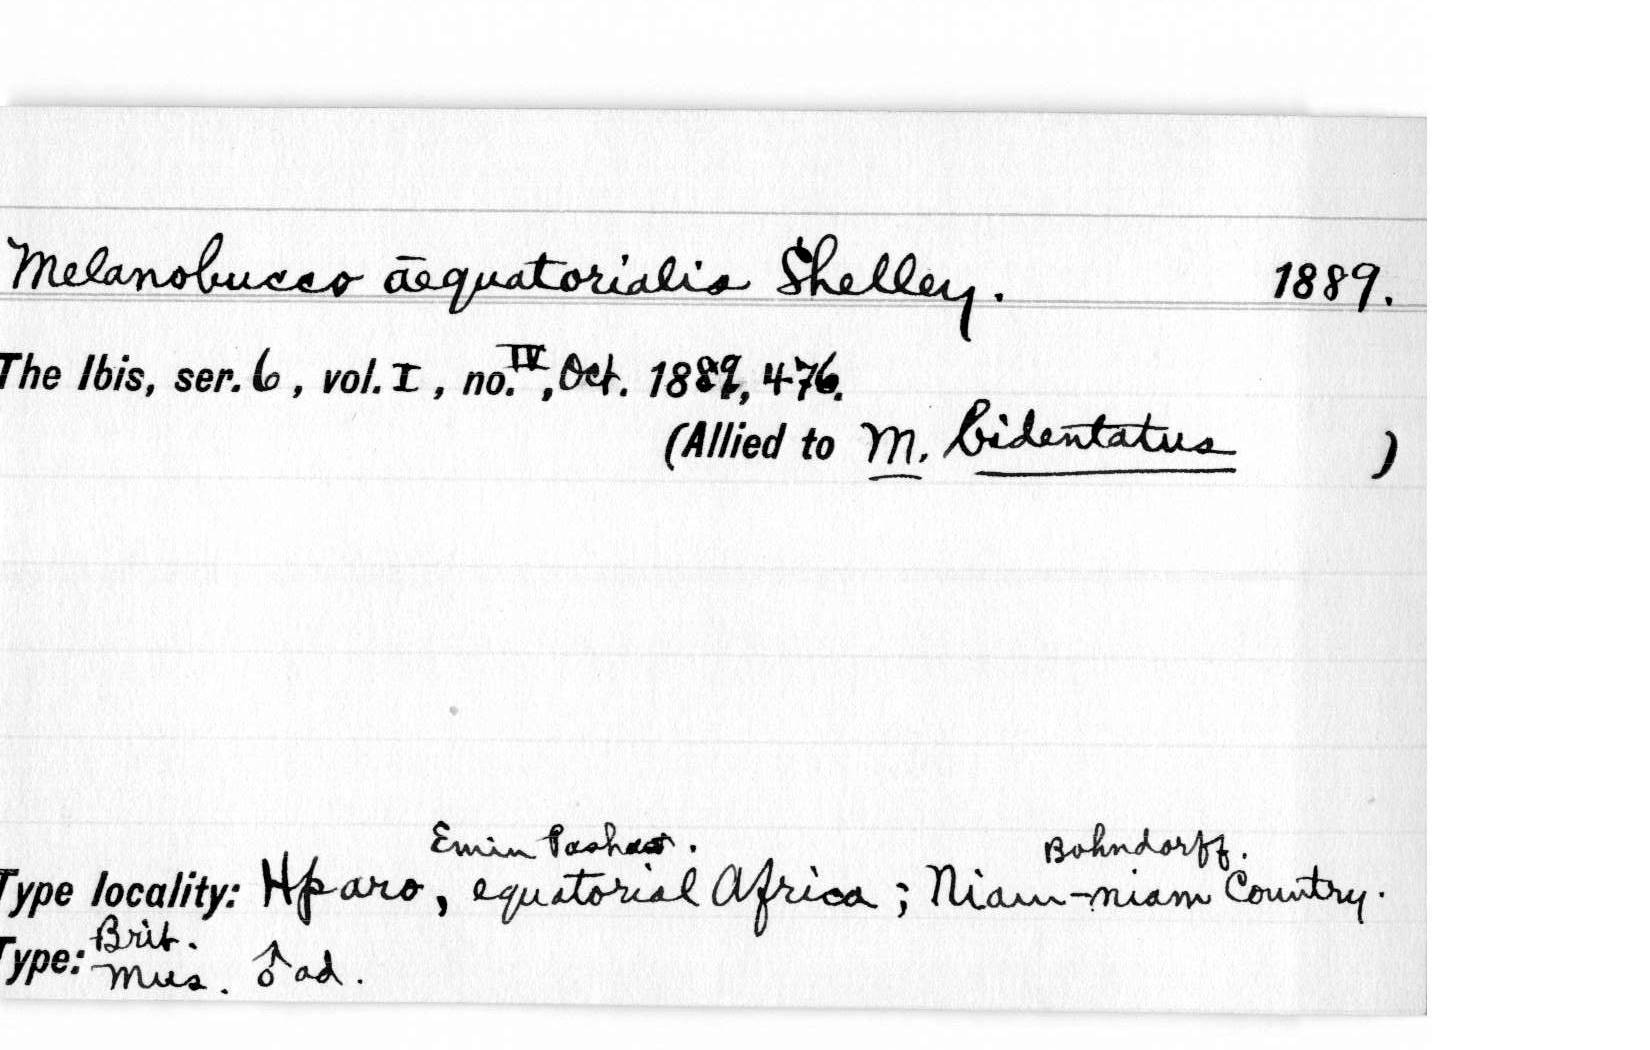 Melanobucco āequatorialis Shelley. 1889.
The Ibis, ser. 6, vol. I, no. IV, Oct. 1889, 476.
(Allied to M. bidentatus )
Emin Pasha. Bohndorff.
Type locality: Hparo, equatorial Africa; Niam-niam Country.
Type: Brit. Mus. ♂ ad.